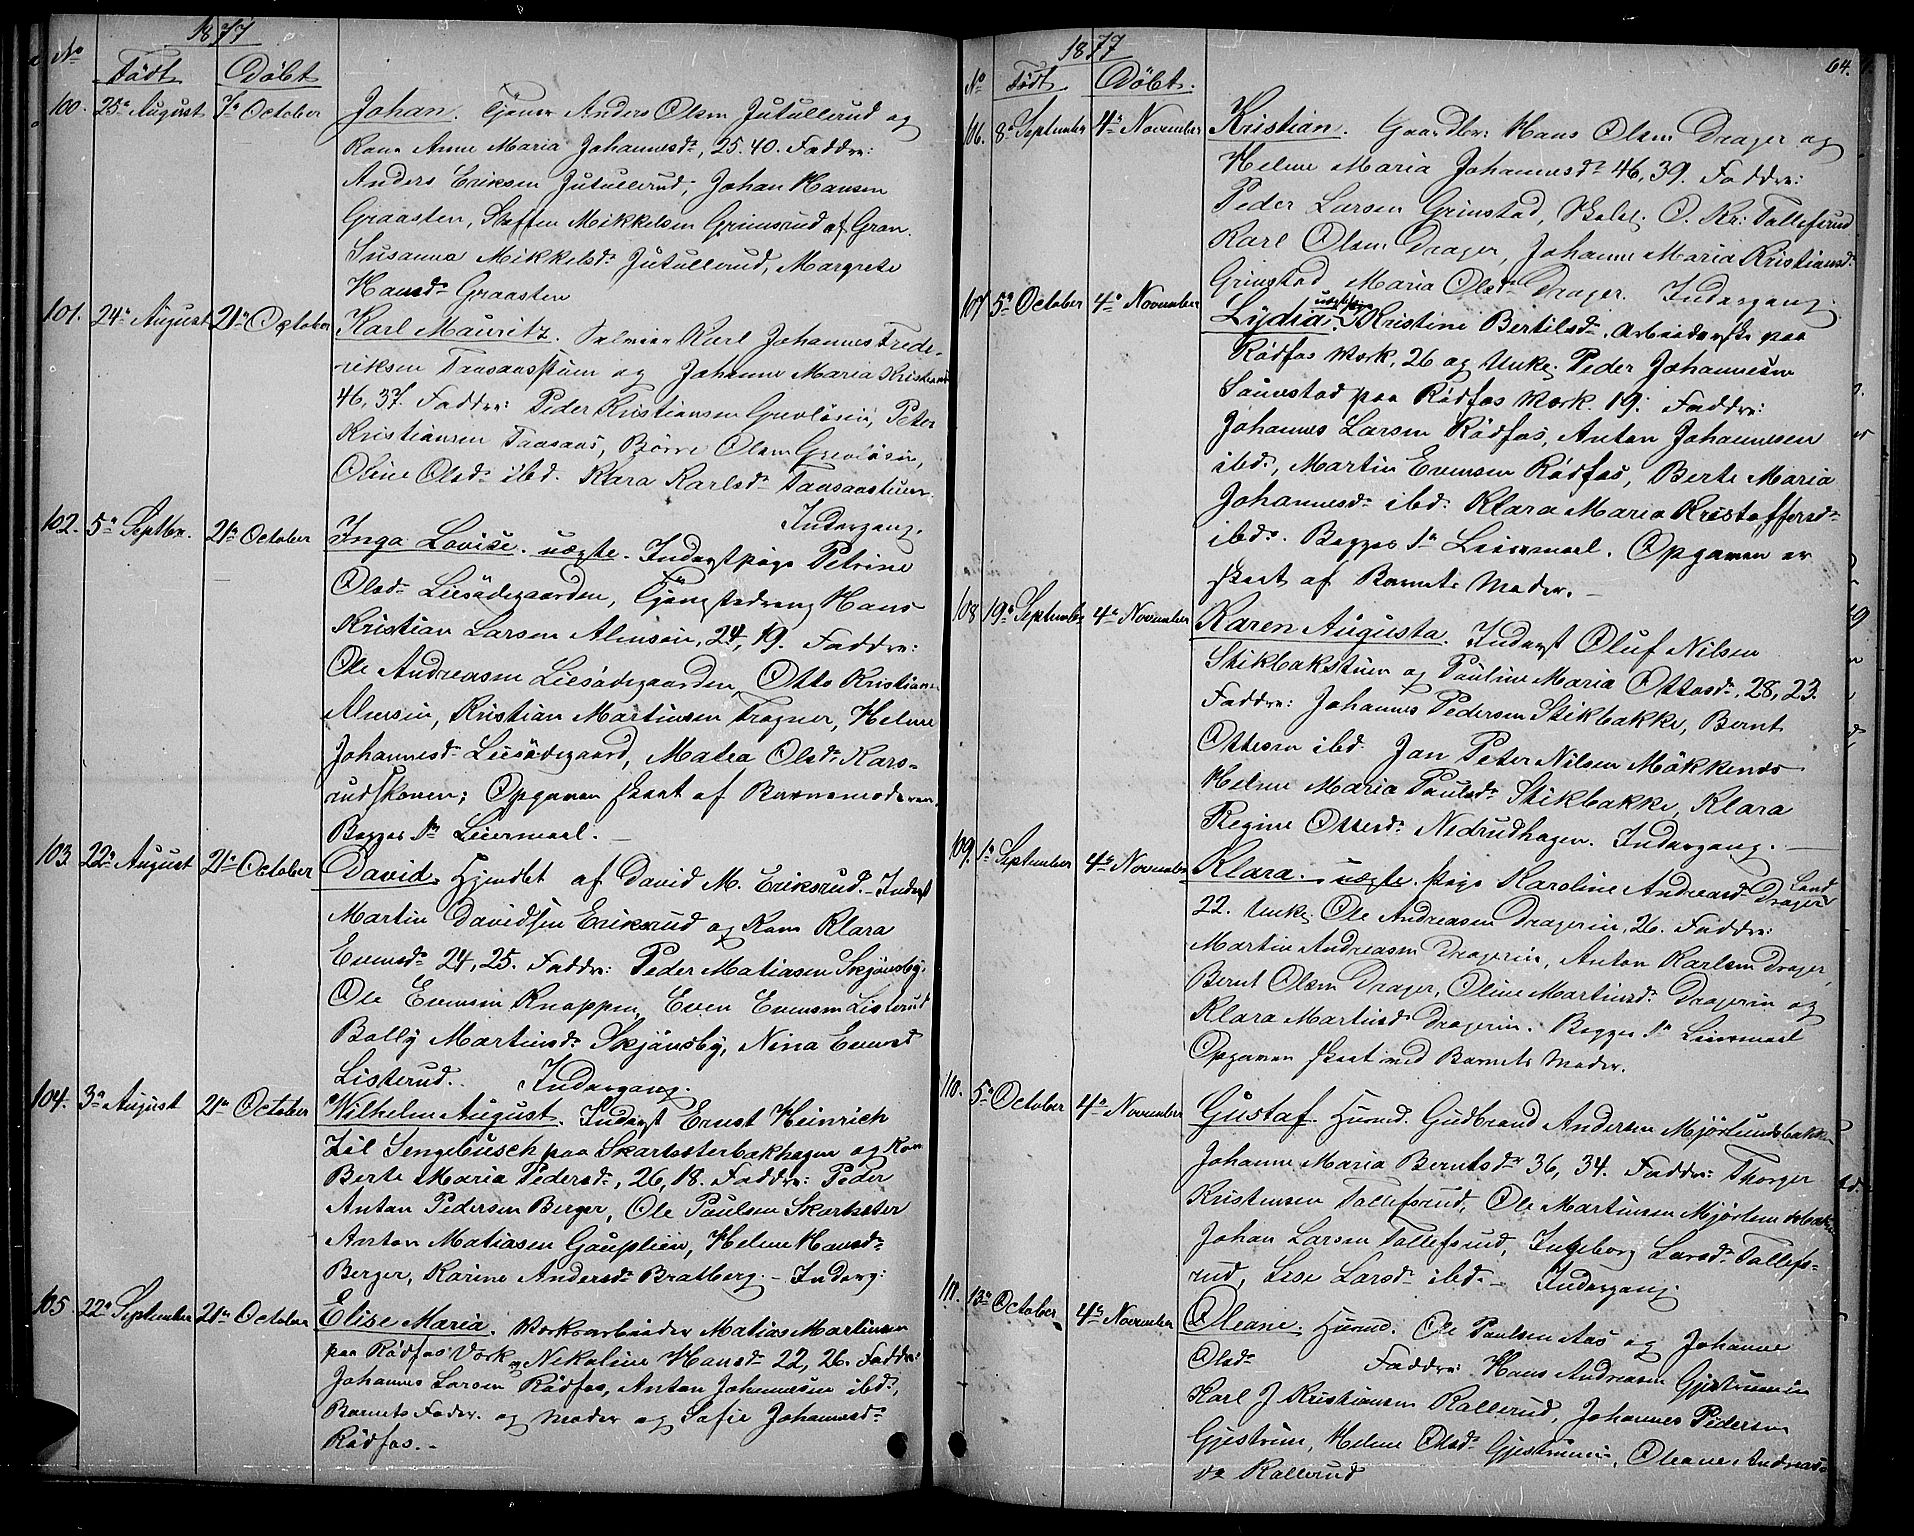 1877
No Født Døbt
100. 25de August 7de October Johan. Tjener Anders Olsen Jutullerud og
Kone Anne Maria Johannesdr, 25. 40. Faddre:
Anders Eriksen Jutullerud, Johan Hansen
Graasten, Steffen Mikkelsen Grimsrud af Gran.
Susanna Mikkelsdr Jutullerud, Margrete
Hansdr Graasten
101. 24de August 21de October Karl Mauritz. Karl Johannes Frede-
riksen Taasaasstuen og Johanne Maria
46, 37. Faddre: Peder Kristiansen Grevløsin, Peter
Kristiansen Taasaas, Børre Olsen Grevløsin,
Oline Olsdr ibd. Klara Karlsdr Taasaastuen.
Indergang.
102. 5de Septbr. 21de October Inga Lovise. uægte. Inderstpige Petrine
Olsdr Liesødegaarden, Tjenestedreng Hans
Kristian Larsen Almsein, 24, 19. Faddre:
Ole Andreasen Liesødegaarden, Otto Kristiansen
Almsein, Kristian Martinsen Tragner, Helene
Johannesdr Liesødegaard, Matea Olsdr Kars-
rudskoven; Opgaven skeet af Barnemoderen.
Begges 1ste Leiermaal. —
103. 22de August 21de October David. Hjemdøbt af David M. Eriksrud. - Inderst
Martin Davidsen Eriksrud og Kone Klara
Evensdr 24, 25. Faddre: Peder Matiasen Skjønsby,
Ole Evensen Knappen, Even Evensen Listerud
Bolly Martinsdr Skjønsby, Nina Evensd
Listerud. Indergang.
104. 3de August 21de October Wilhelm August. Inderst Ernst Heinrich
Sengebusch paa Skartseterbakhagen og Kone
Berte Maria Pedersdr, 26, 18. Faddre: Peder
Anton Pedersen Berger, Ole Paulsen Skartseter
Anton Matiasen Gauplien, Helene Hansdr
Berger, Karine Andersdr Bratberg. - Inderg:
105. 22de September 21de October Elise Maria. Værksarbeider Matias Martinsen
paa Rødfos Værk og Nikoline Hansdr 22, 26. Faddre:
Johannes Larsen Rødfos, Anton Johannesen ibd,
Barnets Fader og Moder og Sofie Johannesdr
Rødfos. -
1877 64.
No Født Døbt.
106. 8de September 4de November Kristian. Gaardbr: Hans Olsen Drager og
Helene Maria Johannesdr 46, 39. Faddre:
Peder Larsen Grinstad, Skolel. O. Kr: Tollefsrud
Karl Olsen Drager, Johanne Maria Kristiansdr
Grinstad, Maria Olsdr Drager. Indergang.
107 5de October 4de November Lydia, uægte, Kristine Bertilsdr. Arbeiderske paa
Rødfos Værk, 26 og Unke: Peder Johannesen
Sønstad paa Rødfos Værk. 19. Faddre:
Johannes Larsen Rødfos, Anton Johannesen
ibd, Martin Evensen Rødfos, Berte Maria
Johannesdr ibd. Klara Maria Kristoffersdr
ibd. Begges 1ste Leiermaal. Opgaven er
skeet af Barnets Moder. —
108 19de September 4de November Karen Augusta. Inderst Oluf Nilsen
Stikbakstuen og Pauline Maria Ottosdr, 28, 23.
Faddre: Johannes Pedersen Stikbakke, Bernt
Ottesen ibd. Jan Peter Nilsen Møkkends
Helene Maria Paulsdr Stikbakke, Klara
Regine Ottesdr Nedrudhagen. Indergang. —
109. 1de September 4de November Klara. uægte. Pige Karoline Andreasdr Drager Land
22. Unke: Ole Andreasen Dragerin, 26. Faddre:
Martin Andreasen Dragerin, Anton Karlsen Drager,
Bernt Olsen Drager, Oline Martinsdr Dragerin og
Klara Martinsd Dragerin. Begges 1ste Leiermaal
Opgaven skeet ved Barnets Moder.
110. 5de October 4de November Gustaf. Husmd. Gudbrand Andersen Mjørlundsbakken
Johanne Maria Berntsdr 36, 34. Faddre: Thorger
Kristensen Tollefsrud, Ole Martinsen Mjørlundsbakken
Johan Larsen Tollefsrud, Ingeborg Larsdr Tollefs-
rud, Lise Larsdr ibd. - Indergang.
111. 13de October 4de November Oleane. Husmd. Ole Paulsen Aas og Johanne
Olsdr Faddre: Hans Andreasen Gjestrumin
Karl J Kristiansen Kallerud, Johannes Pedersen
Gjestrum, Helene Olsdr Gjestrumin, Oleane Andreas-
dr Kallerud